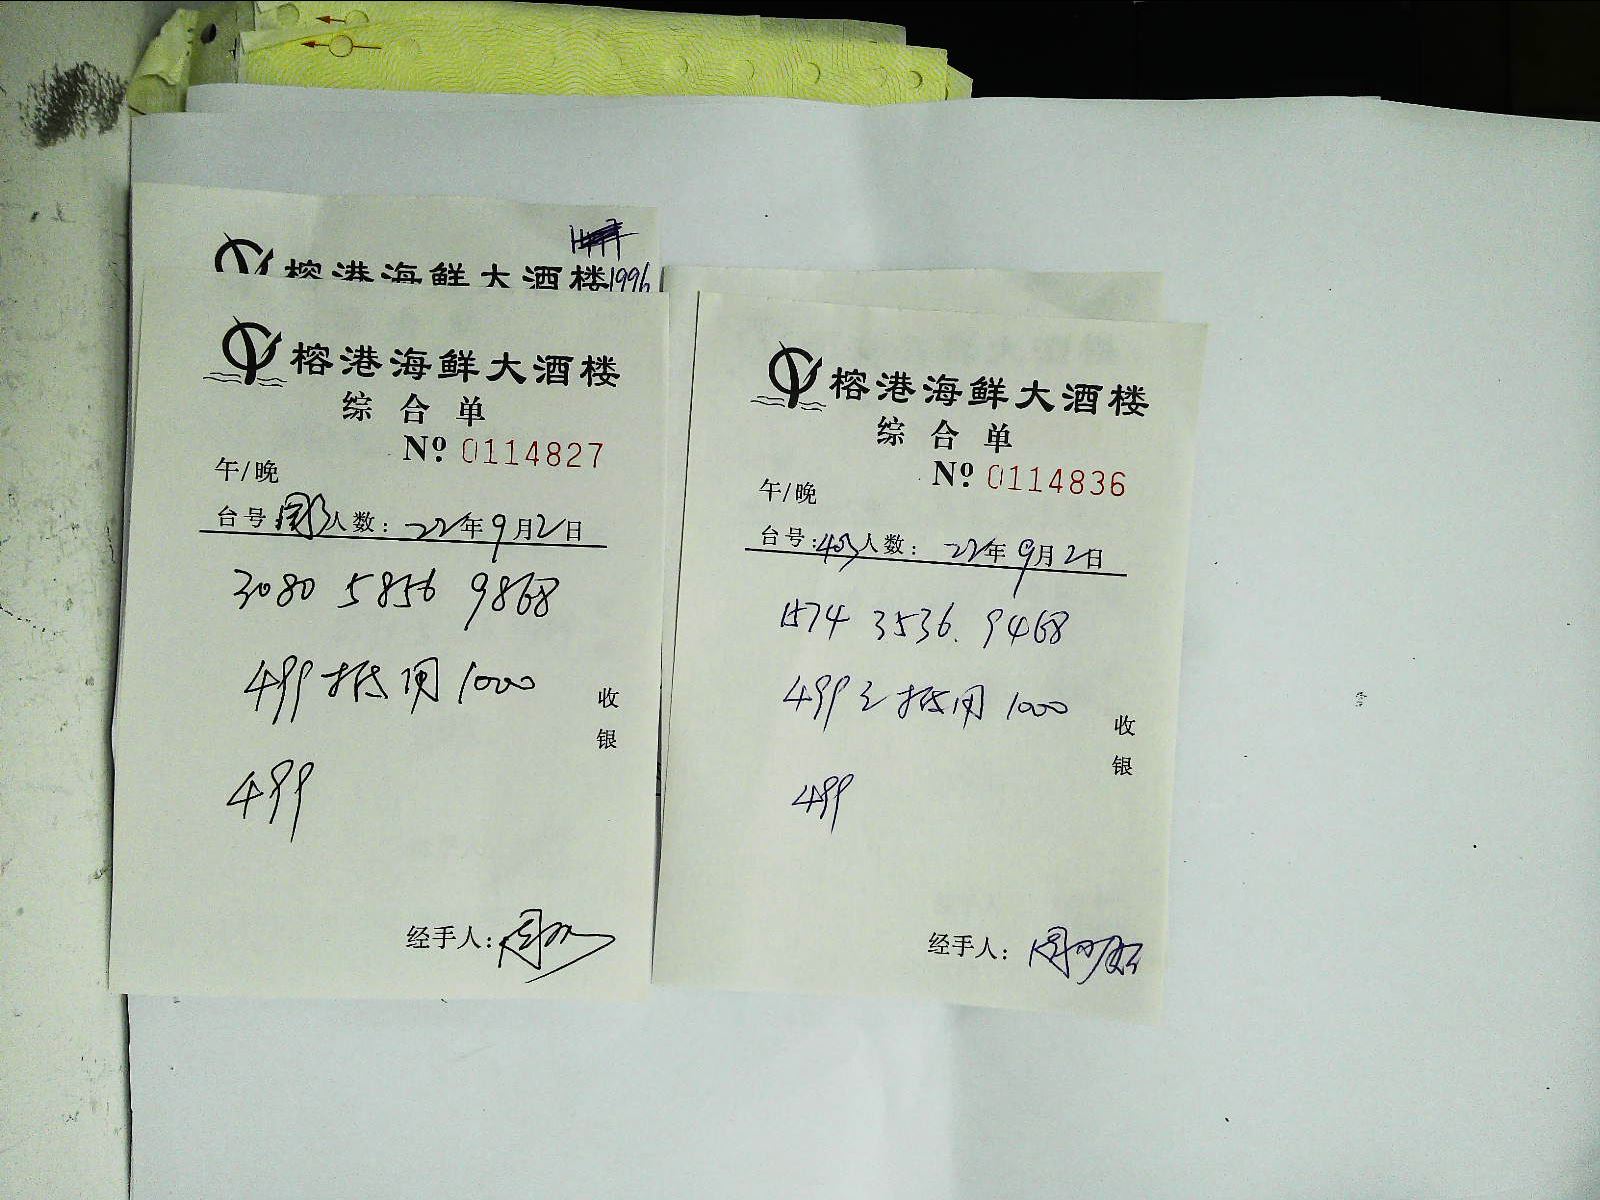 榕港海鲜大酒楼1996
榕港海鲜大酒楼
综合单
Nº 0114827
午/晚
台号 人数: 22年9月2日
3080 5856 9868
499抵用1000
499
收
银
经手人:周
榕港海鲜大酒楼
综合单
Nº 0114836
午/晚
台号: 人数: 22年9月2日
1574 3536. 9468
499之抵用1000
499
收
银
经手人:周